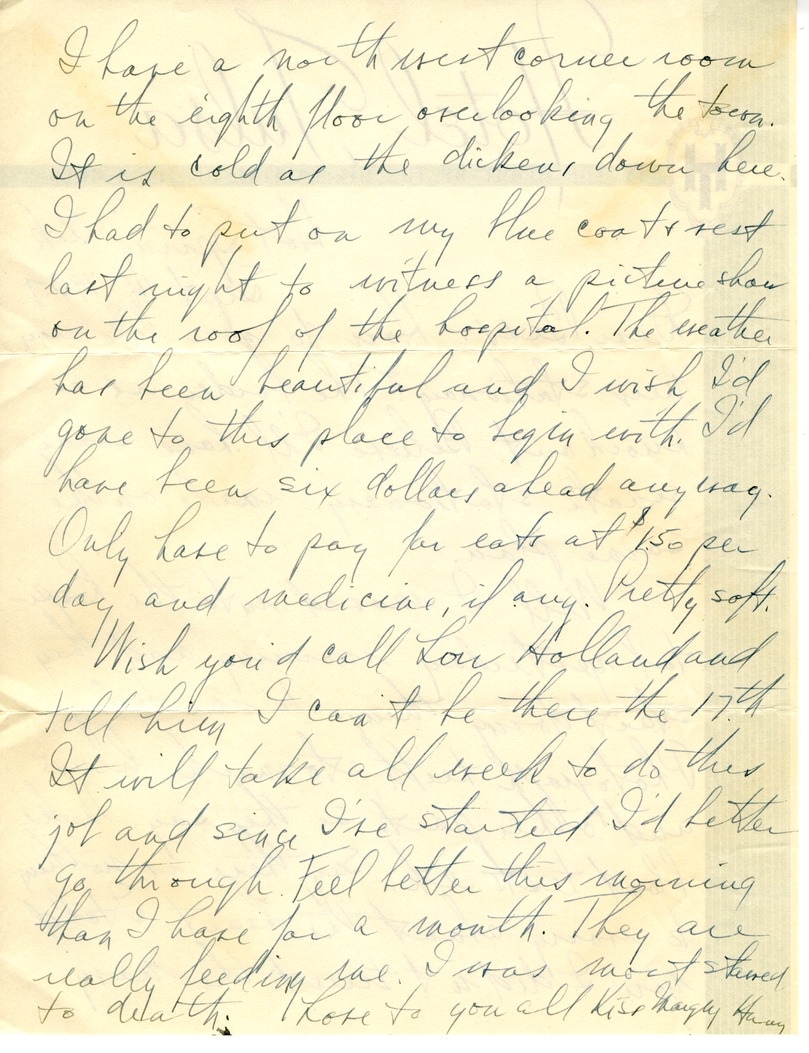 I have a north west corner room
on the eighth floor overlooking the town.
It is cold as the dickens down here.
I had to put on my blue coat & vest
last night to witness a picture show
on the roof of the hospital. The weather
has been beautiful and I wish I'd
gone to this place to begin with. I'd
have been six dollars ahead anyway.
Only have to pay for eats at $1.50 per
day and medicine, if any. Pretty soft.
Wish you'd call Lou Holland and
tell him I can't be there the 17th
It will take all week to do this
job and since I've started I'd better
go through. Feel better this morning
than I have for a month. They are
really feeding me. I was most starved
to death. Love to you all Kiss Margey Harry